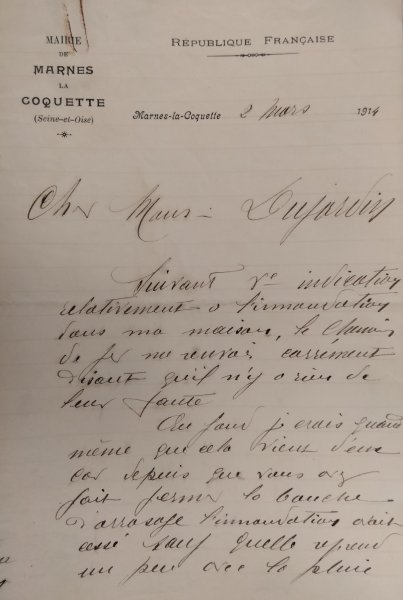 MAIRIE
DE
MARNES
LA
COQUETTE
(Seine-et-Oise)
RÉPUBLIQUE FRANÇAISE
Marnes-la-Coquette 2 Mars 1914
Cher Mons- Dujardin
Suivant Ve indication
relativement a l'innondation
dans ma maison, le Chemin
de fer me renvoi carrément
disant qu'il n'y a rien de
leur faute
Au fond je crois quand
même que cela vient d'eux
car depuis que vous avez
fait fermer la bouche
d'arrosage l'innondation avait
cessé sauf quelle reprend
un peu avec la pluie